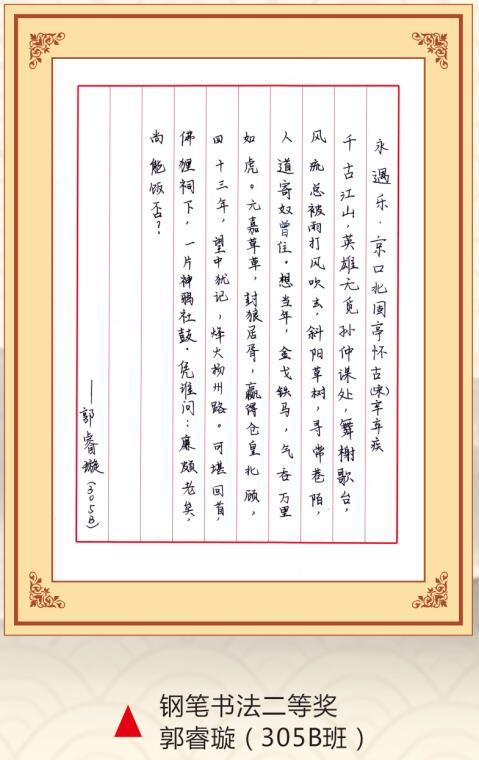 永遇乐·京口北固亭怀古(宋)辛弃疾
千古江山,英雄无觅孙仲谋处,舞榭歌台,
风流总被雨打风吹去,斜阳草树,寻常巷陌,
人道寄奴曾住。想当年,金戈铁马,气吞万里
如虎。元嘉草草,封狼居胥,赢得仓皇北顾,
四十三年,望中犹记,烽火扬州路。可堪回首,
佛狸祠下,一片神鸦社鼓。凭谁问:廉颇老矣,
尚能饭否?
——郭睿璇(305B)
钢笔书法二等奖
郭睿璇(305B班)